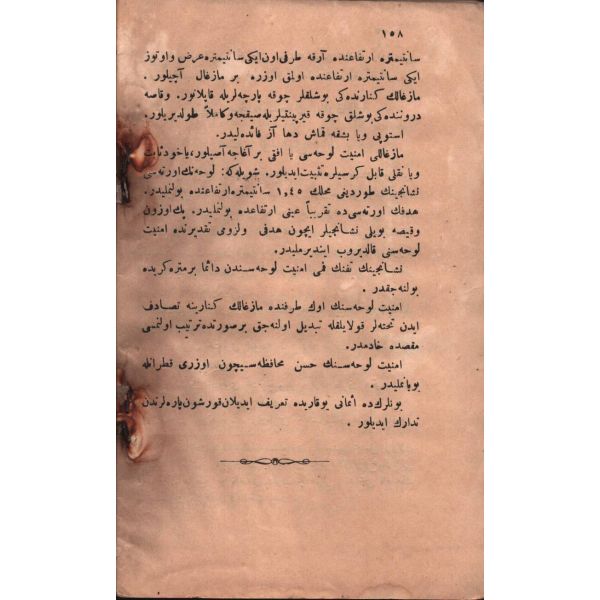 ١٥٨
سانتیمتره ارتفاعنده آرقه طرفی اون ایکی سانتیمتره عرض و اوتوز
ایکی سانتیمتره ارتفاعنده اولمق اوزره بر مازغال آچیلور .
مازغالك کنارنده کی بوشلقلر چوقه پارچه لریله قاپلانور . وقاصه
دروننده کی بوشلق چوقه قیرپینتیلریله صیقجه وکاملاً طولدیریلور .
استوپی ویا بشقه قماش دها آز فائده لیدر .
مازغاللی امنیت لوحه سی یا افقی بر آغاجه آصیلور، یاخود ثابت
ویا نقلی قابل کرسیلره تثبیت ایدیلور . شویله که : لوحه نك اورته سی
نشانجینك طوردینی محلك ١,٤٥ سانتیمتره ارتفاعنده بولنملیدر .
هدفك اورته سی ده تقریباً عینی ارتفاعده بولنملیدر . پك اوزون
وقیصه بویلی نشانجیلر ایچون هدفی ولزومی تقدیرنده امنیت
لوحه سنی قالدیروب ایندیرملیدر .
نشانجینك تفنك فمی امنیت لوحه سندن دائما برمتره کریده
بولنه جقدر .
امنیت لوحه سنك اوك طرفنده مازغالك کنارینه تصادف
ایدن تخته لر قولایلقله تبدیل اولنه جق بر صورتده ترتیب اولنمسی
مقصده خادمدر .
امنیت لوحه سنك حسن محافظه سیچون اوزری قطرانله
بویانملیدر .
بونلرك ده اثمانی یوقاریده تعریف ایدیلان قورشون پاره لرندن
تدارك ایدیلور .